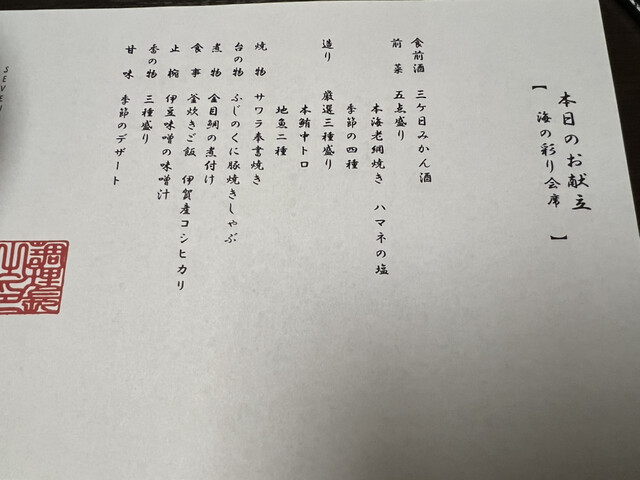 本日のお献立
【 海の彩り会席 】
食前酒 三ケ日みかん酒
前菜 五点盛り
本海老網焼き ハマネの塩
季節の四種
造り 厳選三種盛り
本鮪中トロ
地魚二種
焼物 サワラ奉書焼き
台の物 ふじのくに豚焼きしゃぶ
煮物 金目鯛の煮付け
食事 釜炊きご飯 伊賀産コシヒカリ
止椀 伊豆味噌の味噌汁
香の物 三種盛り
甘味 季節のデザート
調理長